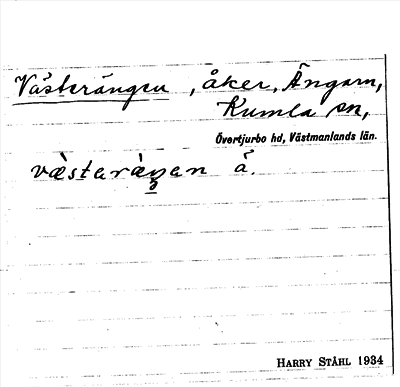 Västerängen, åker, Ängarn,
Kumla sn,
Övertjurbo hd, Västmanlands län.
væ̀staræ̀ŋan å.
HARRY STÅHL 1934